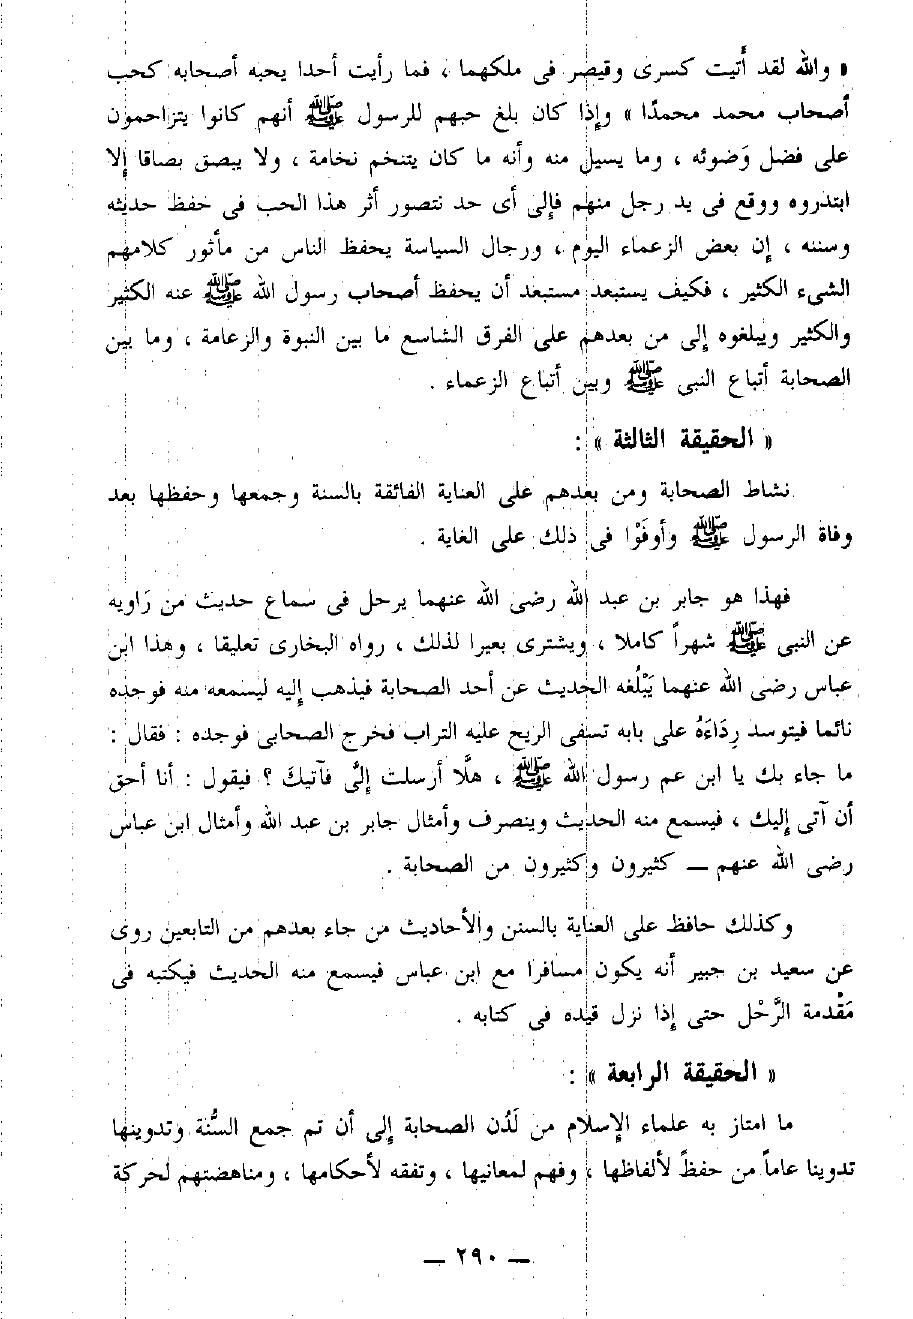 « والله لقد أتيت كسرى وقيصر فى ملكهما ، فما رأيت أحدا يحبه أصحابه كحب
أصحاب محمد محمدًا » وإذا كان بلغ حبهم للرسول ﷺ أنهم كانوا يتزاحمون
على فضل وَضوئه ، وما يسيل منه وأنه ما كان يتنخم نخامة ، ولا يبصق بصاقا إلا
ابتدروه ووقع فى يد رجل منهم فإلى أى حد نتصور أثر هذا الحب فى حفظ حديثه
وسننه ، إن بعض الزعماء اليوم ، ورجال السياسة يحفظ الناس من مأثور كلامهم
الشىء الكثير ، فكيف يستبعد مستبعد أن يحفظ أصحاب رسول الله ﷺ عنه الكثير
والكثير ويبلغوه إلى من بعدهم على الفرق الشاسع ما بين النبوة والزعامة ، وما بين
الصحابة أتباع النبى ﷺ وبين أتباع الزعماء .
« الحقيقة الثالثة » :
نشاط الصحابة ومن بعدهم على العناية الفائقة بالسنة وجمعها وحفظها بعد
وفاة الرسول ﷺ وأوفَوْا فى ذلك على الغاية .
فهذا هو جابر بن عبد الله رضى الله عنهما يرحل فى سماع حديث من رَاويه
عن النبى ﷺ شهراً كاملا ، ويشترى بعيرا لذلك ، رواه البخارى تعليقا ، وهذا ابن
عباس رضى الله عنهما يَبْلُغه الحديث عن أحد الصحابة فيذهب إليه ليسمعه منه فوجده
نائما فيتوسد رِدَاءَهُ على بابه تسفى الريح عليه التراب فخرج الصحابى فوجده : فقال :
ما جاء بك يا ابن عم رسول الله ﷺ ، هلَّا أرسلت إلىَّ فآتيكَ ؟ فيقول : أنا أحق
أن آتى إليك ، فيسمع منه الحديث وينصرف وأمثال جابر بن عبد الله وأمثال ابن عباس
رضى الله عنهم – كثيرون وكثيرون من الصحابة .
وكذلك حافظ على العناية بالسنن والأحاديث من جاء بعدهم من التابعين روى
عن سعيد بن جبير أنه يكون مسافرا مع ابن عباس فيسمع منه الحديث فيكتبه فى
مَقْدمة الرَّحْل حتى إذا نزل قيده فى كتابه .
« الحقيقة الرابعة » :
ما امتاز به علماء الإسلام من لَدُن الصحابة إلى أن تم جمع السُّنة وتدوينها
تدوينا عاماً من حفظً لألفاظها ، وفهم لمعانيها ، وتفقه لأحكامها ، ومناهضتهم لحركة
– ٢٩٠ –